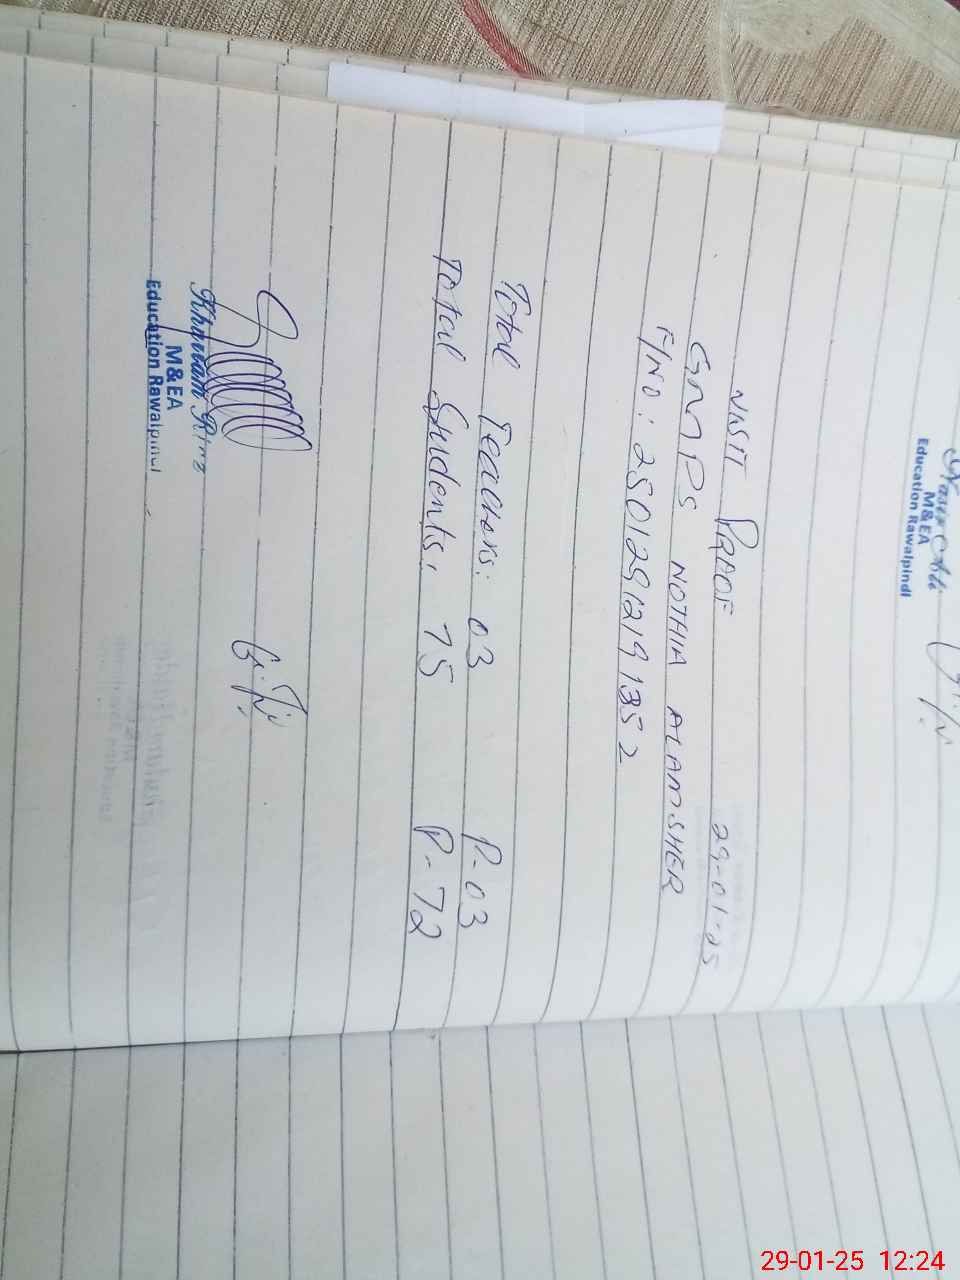 Nasir Ali
M&EA
Education Rawalpindi
VISIT PRAOF 29-01-25
GMPS NOTHIA ALAMSHER
A/NO: 25012912191352
Total Teachers: 03 P-03
Total Sudents. 75 P-72
Khurram Riaz
M&EA
Education Rawalpindi
29-01-25 12:24